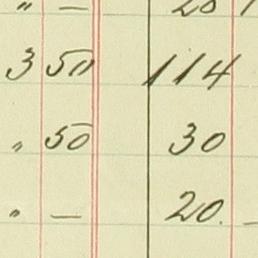 " —
3 50 114
" 50 30
" — 20.